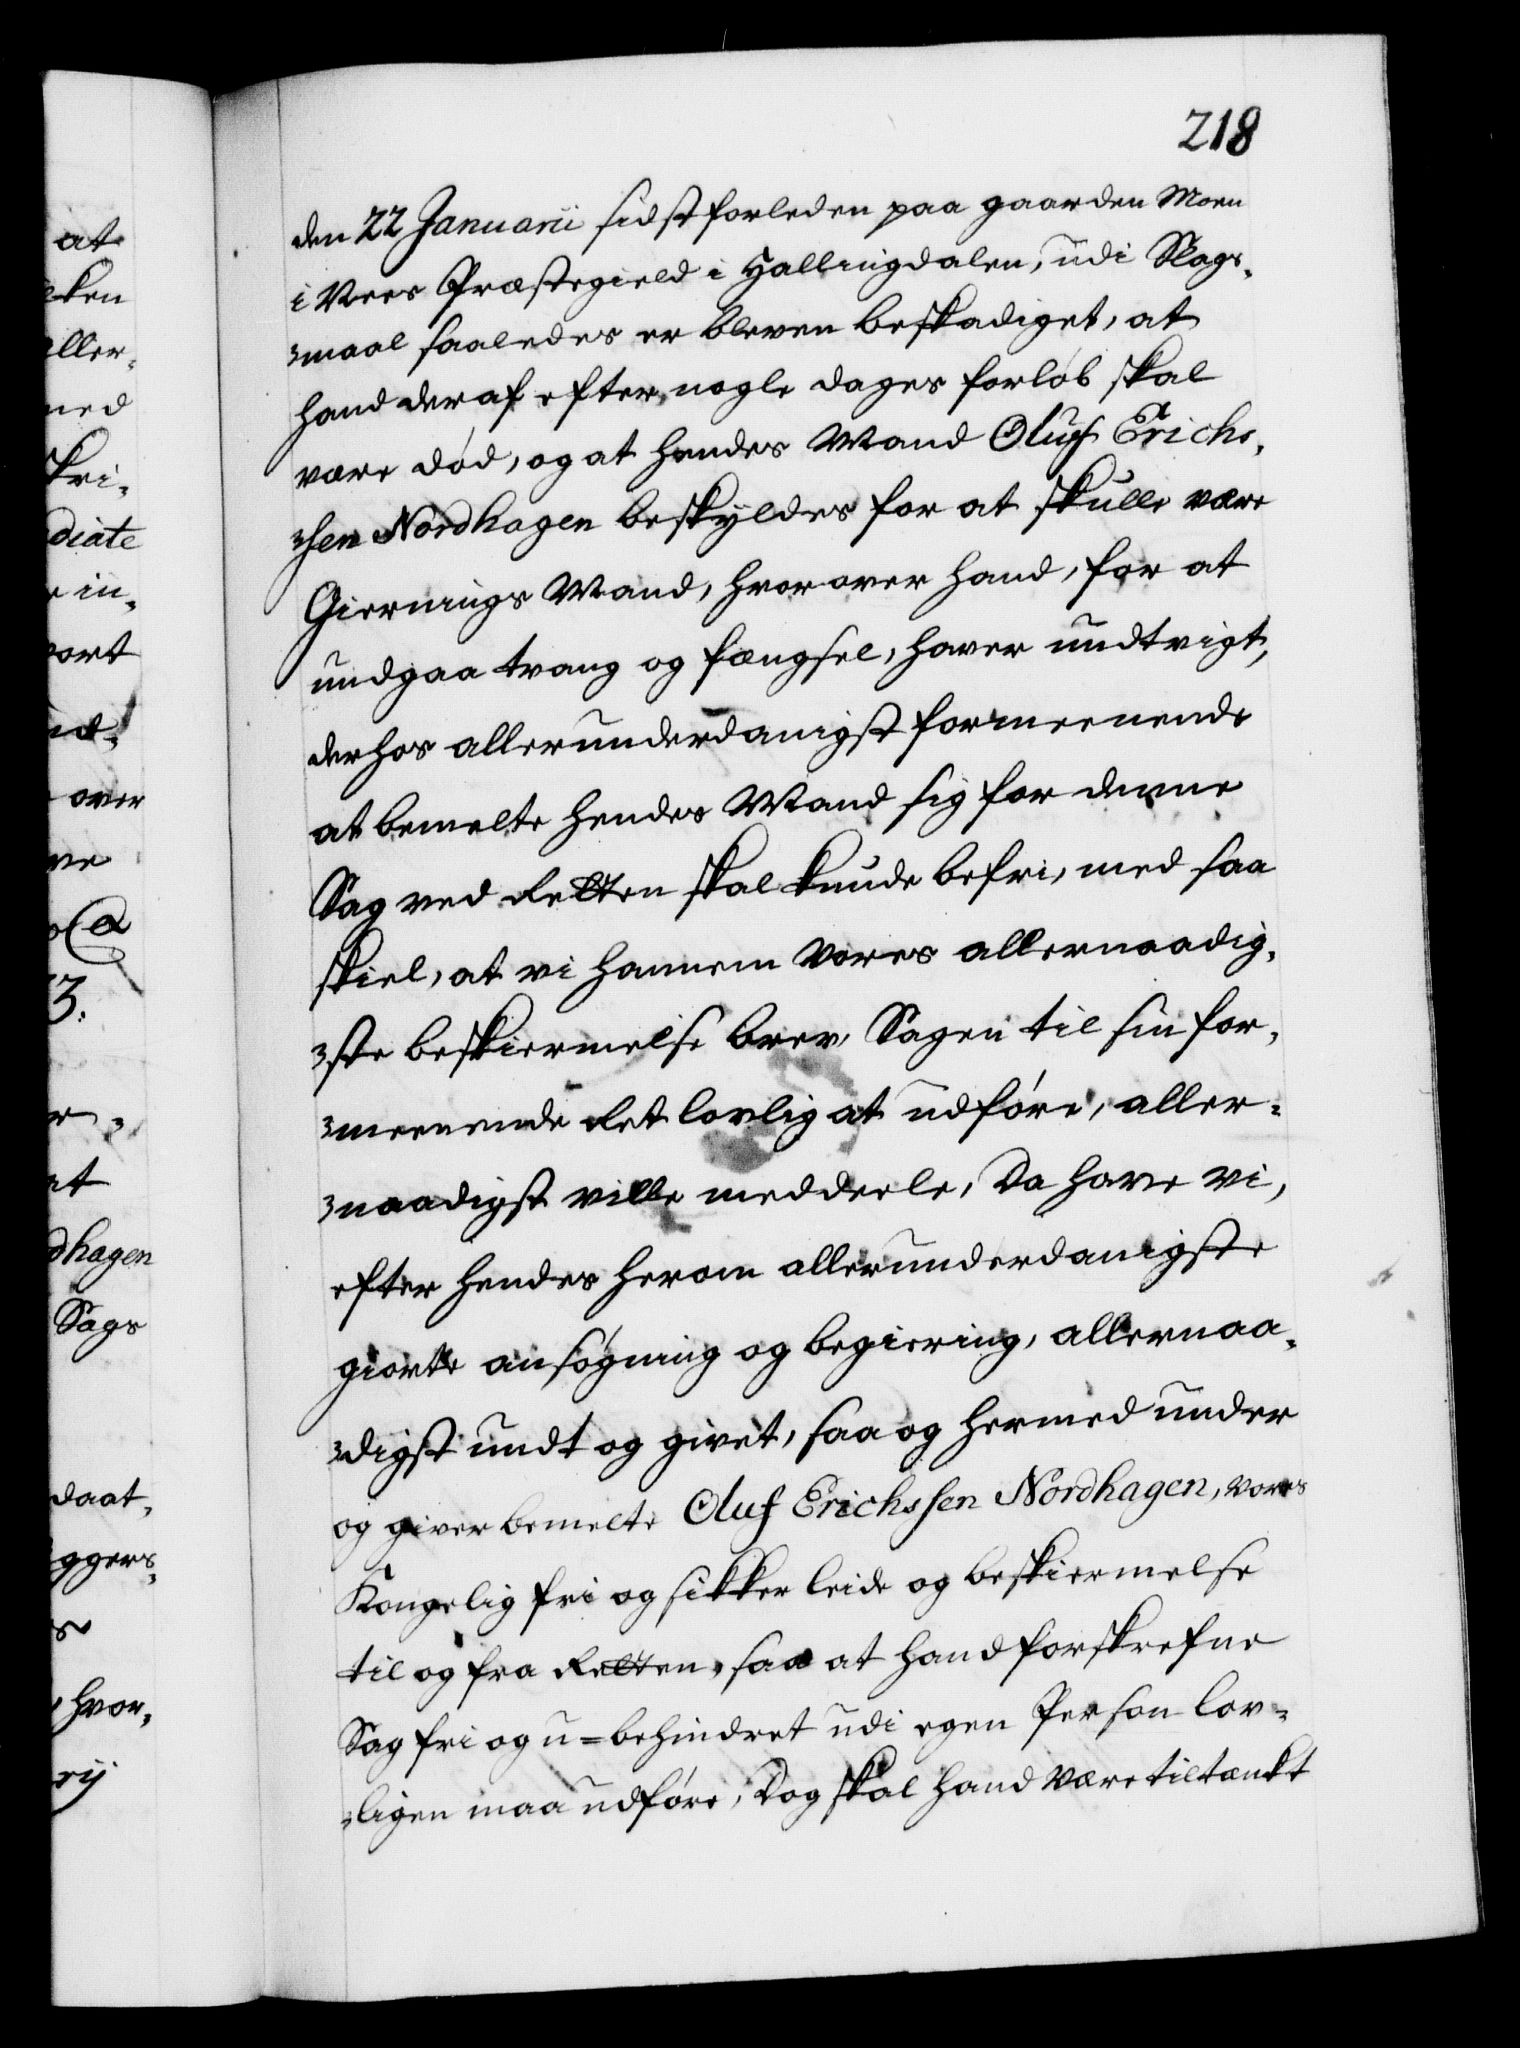 218
den 22 Januarii sidstforleden paa gaarden Moen
i Nees Præstegield i Hallingdalen, udi Slags-
-maal saaledes er bleven beskadiget, at
hand deraf efter nogle dages forløb skal
være død, og at hendes Mand Oluf Erichs-
-sen Nordhagen beskyldes for at skulle være
Giernings Mand, hvorover hand, for at
undgaa trang og fængsel, haver undvigt,
derhos allerunderdanigst formeenende
at bemelte hendes Mand sig for denne
Sag ved Retten skal kunde befri, med saa
skiel, at vi hannem vores allernaadig-
-ste beskiermelse brev, Sagen til sin for-
-meenende Ret lovlig at udføre, aller-
-naadigst ville meddeele, Da have vi,
efter hendes herom allerunderdanigste
giorte ansøgning og begiering, allernaa-
-digst undt og givet, saa og hermed under
og giver bemelte Oluf Erichssen Nordhagen, vores
Kongelig fri og sikker leide og beskiermelse
til og fra Retten, saa at hand forskrefne
Sag fri og u=behindret udi egen Person lov-
-ligen maa udføre, Dog skal hand være tiltænkt
at
ken
aller-
med
skri-
diate
in-
vort
over
3.
dhagen
Sags
daat-
ggers-
hvor-